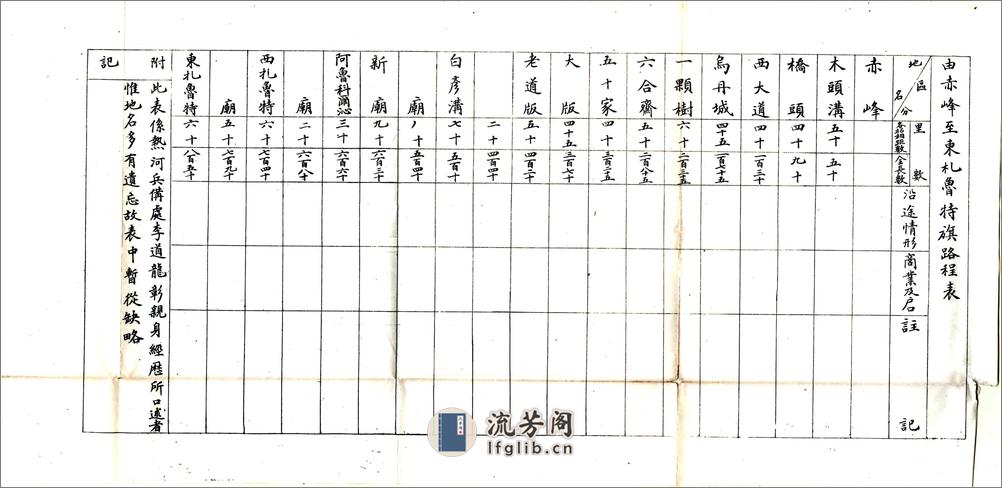 由赤峰至東札魯特旗路程表
地區名分
里數
各站相距數
全長數
沿途情形
商業及戶
註記
赤峰
木頭溝 五十 五十
橋頭 四十 九十
西大道 四十 一百三十
烏丹城 四十五 一百七十五
一顆樹 六十 二百三十五
六合齊 五十 二百八十五
五十家 四十 三百二十五
大版 四十五 三百七十
老道版 五十 四百二十
二十 四百四十
白彥溝 七十 五百一十
廟 八十 五百四十
新廟 九十 六百三十
阿魯科爾沁 三十 六百六十
廟 二十 六百八十
西札魯特 六十 七百四十
廟 五十 七百九十
東札魯特 六十 八百五十
附記
此表係熱河兵備處李道龍彰親身經歷所口述者
惟地名多有遺忘故表中暫從缺略
流芳阁
lfglib.cn